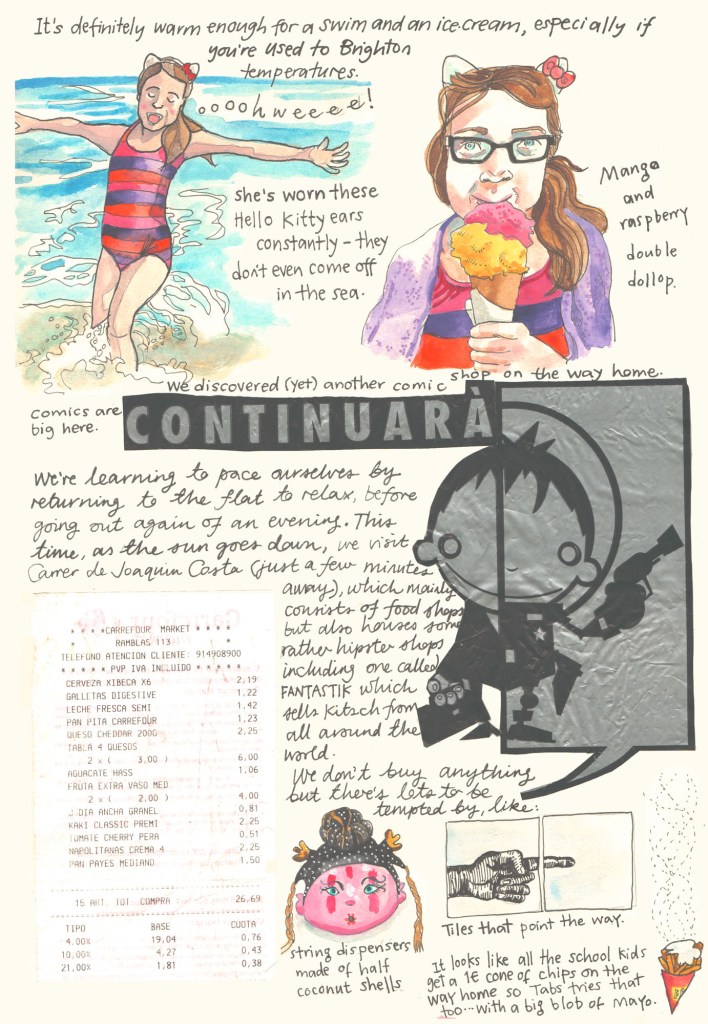 It's definitely warm enough for a swim and an ice-cream, especially if
you're used to Brighton
temperatures.
oooohweeee!
she's worn these
Hello Kitty ears
constantly - they
don't even come off
in the sea.
Mango
and
raspberry
double
dollop.
We discovered (yet) another comic shop on the way home.
comics are
big here.
CONTINUARÀ
We're learning to pace ourselves by
returning to the flat to relax, before
going out again of an evening. This
time, as the sun goes down, we visit
Carrer de Joaquin Costa (just a few minutes
away), which mainly
consists of food shops
but also houses some
rather hipster shops
including one called
FANTASTIK which
sells kitsch from
all around the
world.
We don't buy anything
but there's lots to be
tempted by, like:
* * * * CARREFOUR MARKET * * * * *
* RAMBLAS 113 *
TELEFONO ATENCION CLIENTE: 914908900
* * * * * PVP IVA INCLUIDO * * * * *
CERVEZA XIBECA X6 2,19
GALLETAS DIGESTIVE 1,22
LECHE FRESCA SEMI 1,42
PAN PITA CARREFOUR 1,23
QUESO CHEDDAR 200G 2,25
TABLA 4 QUESOS
2 x ( 3,00 ) 6,00
AGUACATE HASS 1,06
FRUTA EXTRA VASO MED
2 x ( 2,00 ) 4,00
DIA ANCHA GRANEL 0,81
KAKI CLASSIC PREMI 2,25
TOMATE CHERRY PERA 0,51
NAPOLITANAS CREMA 4 2,25
PAN PAYES MEDIANO 1,50
15 ART. TOT. COMPRA 26,69
TIPO BASE CUOTA
4,00% 19,04 0,76
10,00% 4,27 0,43
21,00% 1,81 0,38
string dispensers
made of half
coconut shells
Tiles that point the way.
It looks like all the school kids
get a 1€ cone of chips on the
way home so Tabs tries that
too... with a big blob of mayo.